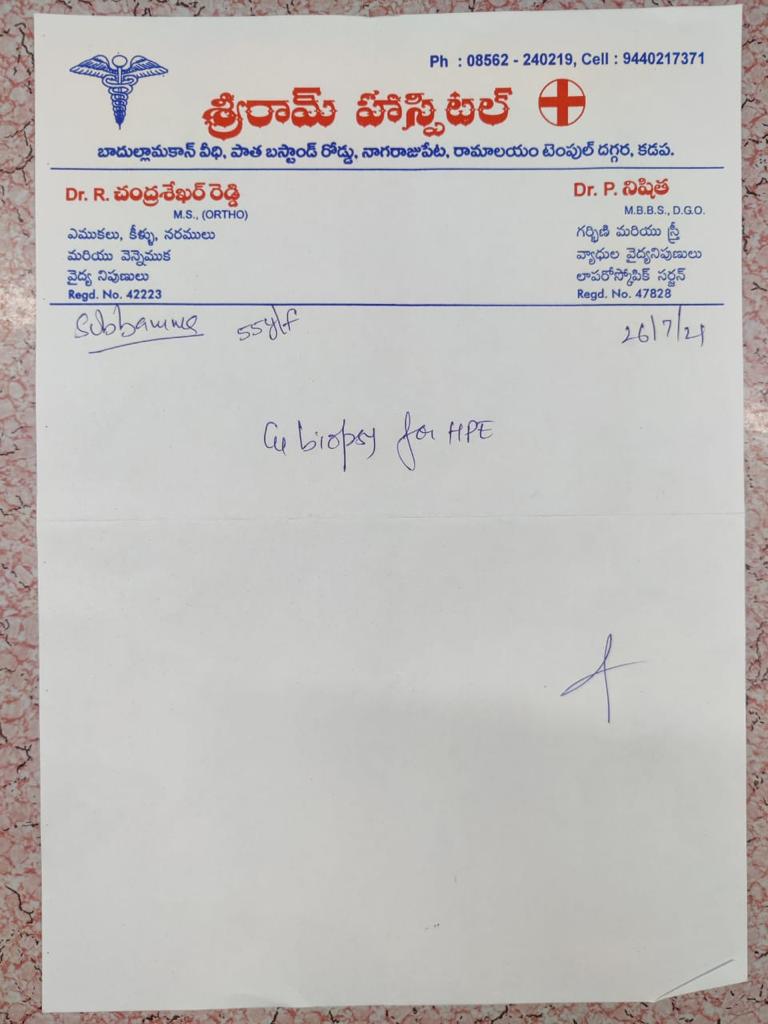 Ph : 08562 - 240219, Cell : 9440217371
శ్రీరామ్ హాస్పిటల్
బాదుల్లామకాన్ వీధి, పాత బస్టాండ్ రోడ్డు, నాగరాజుపేట, రామాలయం టెంపుల్ దగ్గర, కడప.
Dr. R. చంద్రశేఖర్ రెడ్డి
M.S., (ORTHO)
ఎముకలు, కీళ్ళు, నరములు
మరియు వెన్నెముక
వైద్య నిపుణులు
Regd. No. 42223
Dr. P. నిషిత
M.B.B.S., D.G.O.
గర్భిణి మరియు స్త్రీ
వ్యాధుల వైద్యనిపుణులు
లాపరోస్కోపిక్ సర్జన్
Regd. No. 47828
Subbamma 55y/F 26/7/21
Cx biopsy for HPE